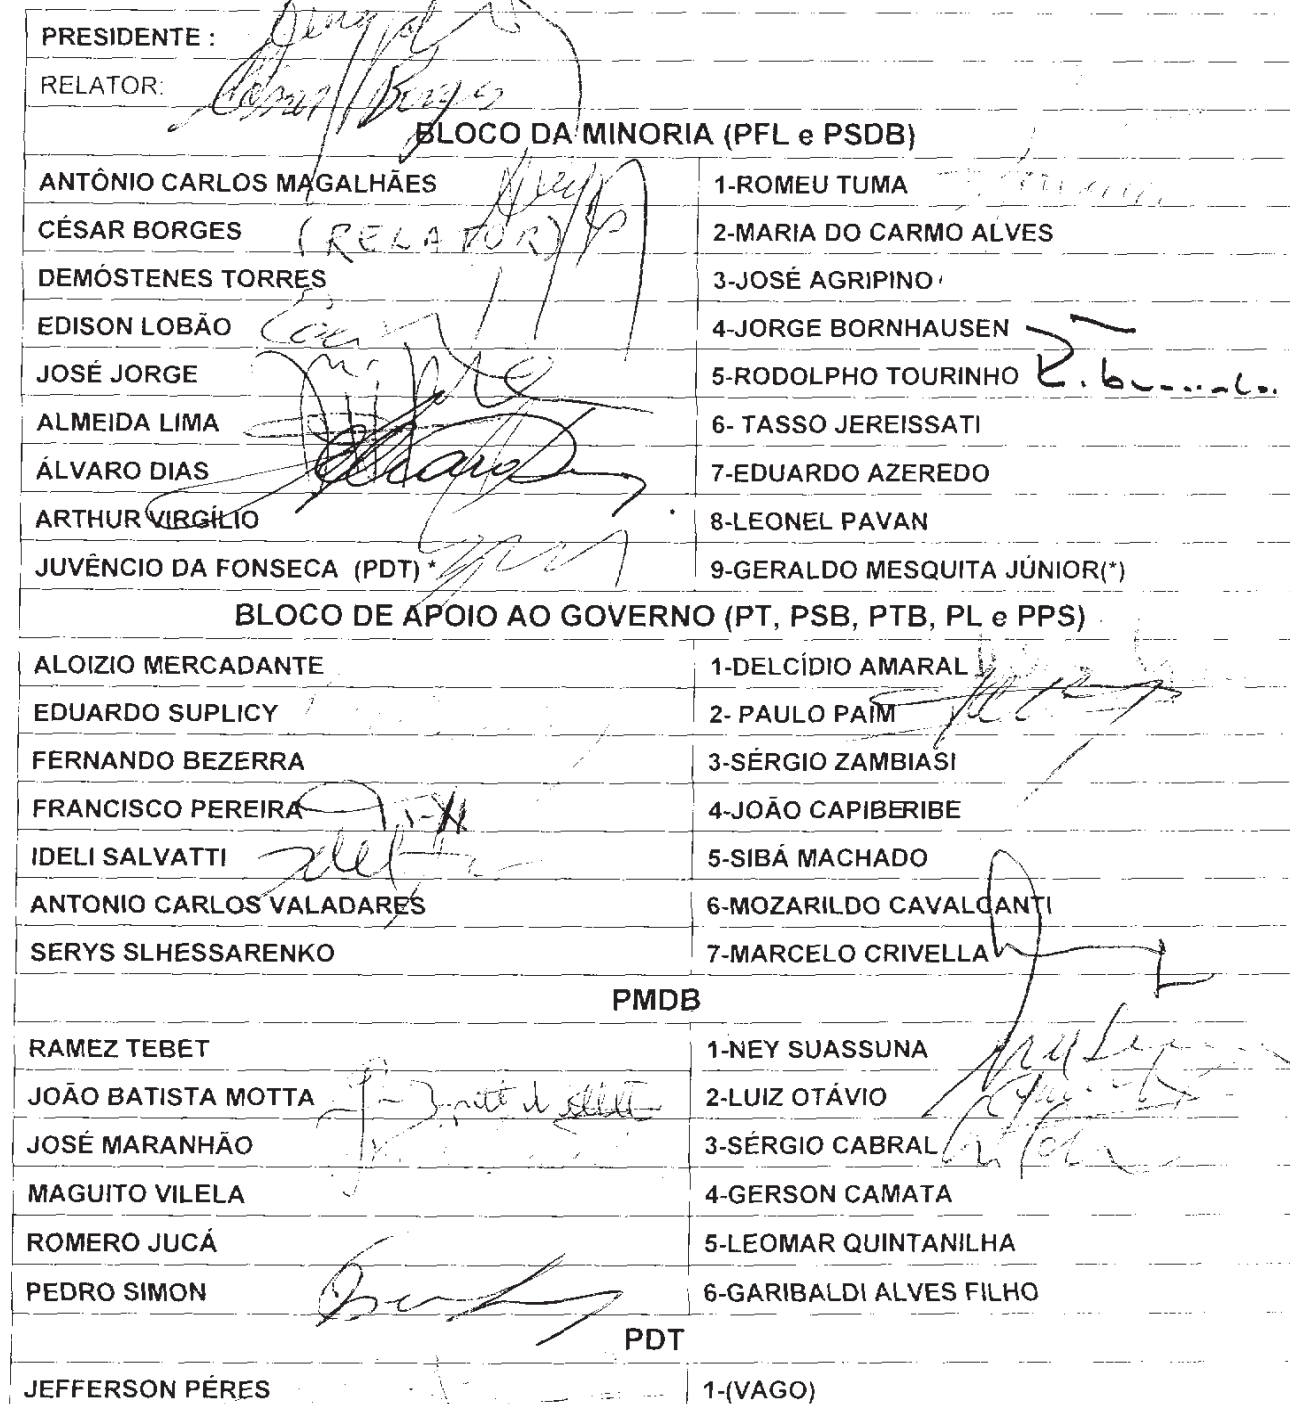 PRESIDENTE :
RELATOR: César Borges
BLOCO DA MINORIA (PFL e PSDB)
ANTÔNIO CARLOS MAGALHÃES 1-ROMEU TUMA
CÉSAR BORGES (RELATOR) 2-MARIA DO CARMO ALVES
DEMÓSTENES TORRES 3-JOSÉ AGRIPINO
EDISON LOBÃO 4-JORGE BORNHAUSEN
JOSÉ JORGE 5-RODOLPHO TOURINHO
ALMEIDA LIMA 6- TASSO JEREISSATI
ÁLVARO DIAS 7-EDUARDO AZEREDO
ARTHUR VIRGÍLIO 8-LEONEL PAVAN
JUVÊNCIO DA FONSECA (PDT) * 9-GERALDO MESQUITA JÚNIOR(*)
BLOCO DE APOIO AO GOVERNO (PT, PSB, PTB, PL e PPS)
ALOIZIO MERCADANTE 1-DELCÍDIO AMARAL
EDUARDO SUPLICY 2- PAULO PAIM
FERNANDO BEZERRA 3-SÉRGIO ZAMBIASI
FRANCISCO PEREIRA 4-JOÃO CAPIBERIBE
IDELI SALVATTI 5-SIBÁ MACHADO
ANTONIO CARLOS VALADARES 6-MOZARILDO CAVALCANTI
SERYS SLHESSARENKO 7-MARCELO CRIVELLA
PMDB
RAMEZ TEBET 1-NEY SUASSUNA
JOÃO BATISTA MOTTA 2-LUIZ OTÁVIO
JOSÉ MARANHÃO 3-SÉRGIO CABRAL
MAGUITO VILELA 4-GERSON CAMATA
ROMERO JUCÁ 5-LEOMAR QUINTANILHA
PEDRO SIMON 6-GARIBALDI ALVES FILHO
PDT
JEFFERSON PÉRES 1-(VAGO)